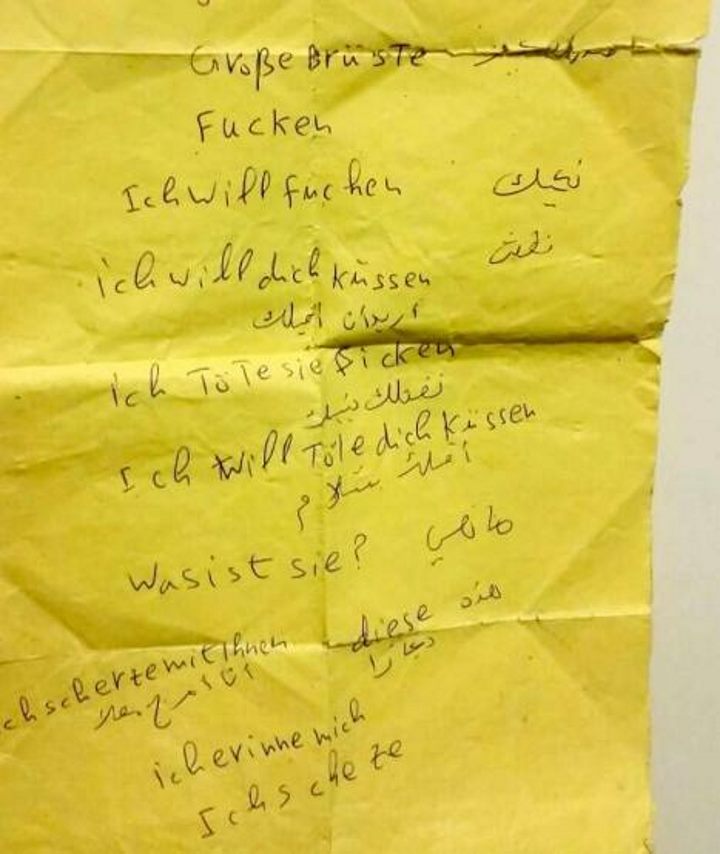 Große Brüste
Fucken
Ich will fucken نيك
ich will dich küssen
اريد ان اقبلك
ich Töte sie ficken
نقتلك نيك
Ich will Töte dich küssen
Was ist sie? ماهي
diese هذه
ch scherze mit Ihnen
انا امزح معك
ich erinne mich
Ich scheze